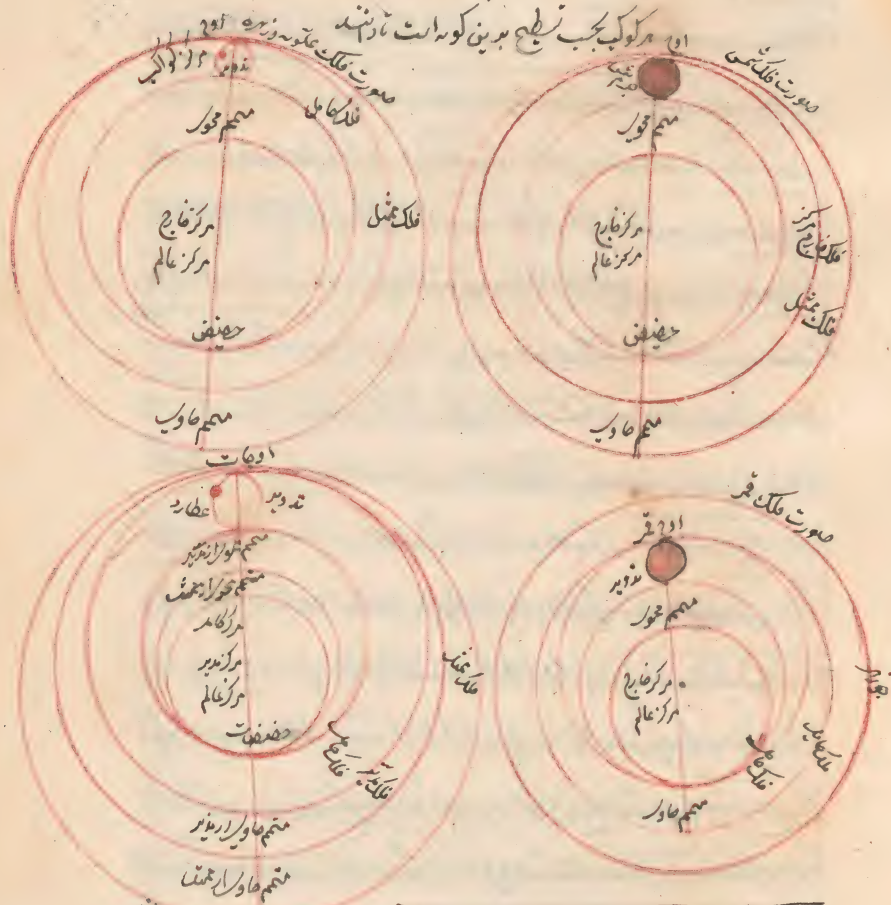 هر کوکب بحسب تسطیح بدین کونه است
صورت فلک شمس
اوج
جرم شمس
متمم محوی
مرکز خارج
مرکز عالم
فلک خارج مرکز
فلک ممثل
حضیض
متمم حاوی
صورت فلک علویه و زهره
اوج
تدویر
مرکز کواکب
متمم محوی
فلک حامل
فلک ممثل
مرکز خارج
مرکز عالم
حضیض
متمم حاوی
صورت فلک قمر
اوج قمر
تدویر
متمم محوی
مرکز خارج
مرکز عالم
فلک حامل
فلک مائل
جوزهر
متمم حاوی
اوجات
تدویر
عطارد
متمم محوی از مدیر
متمم محوی از ممثل
مرکز حامل
مرکز مدیر
مرکز عالم
حضیضات
فلک ممثل
فلک حامل
فلک مدیر
متمم حاوی از مدیر
متمم حاوی از ممثل